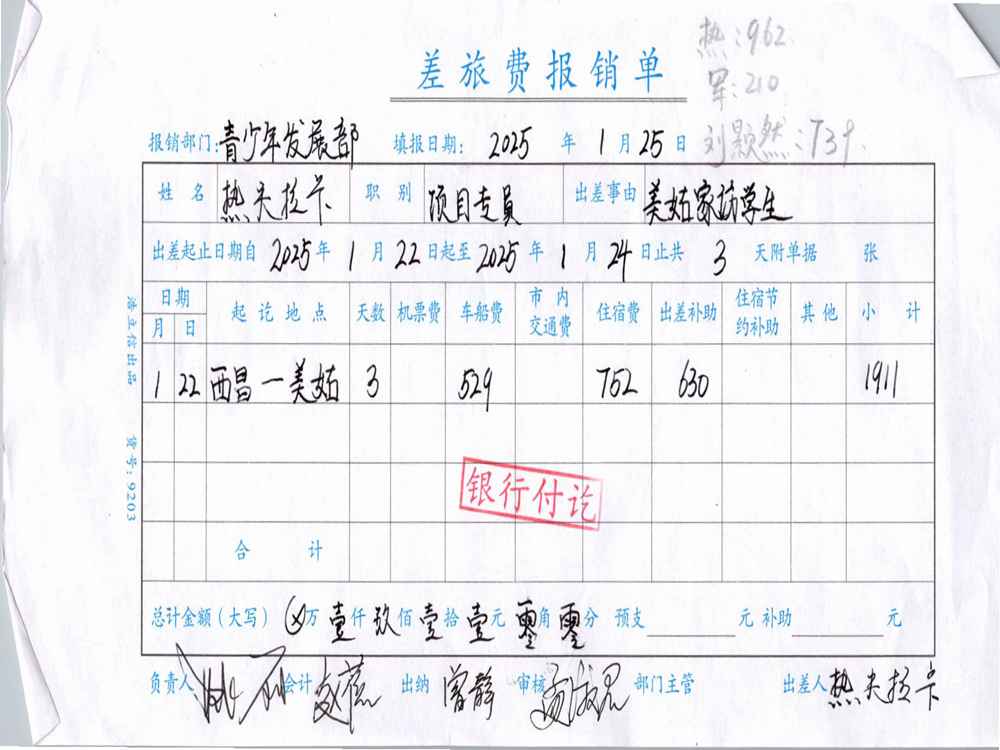 热:962
军:210
刘颢然:739
差旅费报销单
报销部门:青少年发展部 填报日期: 2025 年 1 月 25 日
姓名 热夫拉卡 职别 项目专员 出差事由 美姑家访学生
出差起止日期自 2025 年 1 月 22 日起至 2025 年 1 月 24 日止共 3 天附单据 张
日期 起讫地点 天数 机票费 车船费 市内交通费 住宿费 出差补助 住宿节约补助 其他 小计
月 日
1 22 西昌一美姑 3 529 752 630 1911
银行付讫
合计
总计金额(大写) ⊗万 壹仟 玖佰 壹拾 壹元 零角 零分 预支 元 补助 元
负责人 会计 出纳 曾静 审核 部门主管 出差人 热夫拉卡
浩立信出品 货号:9203